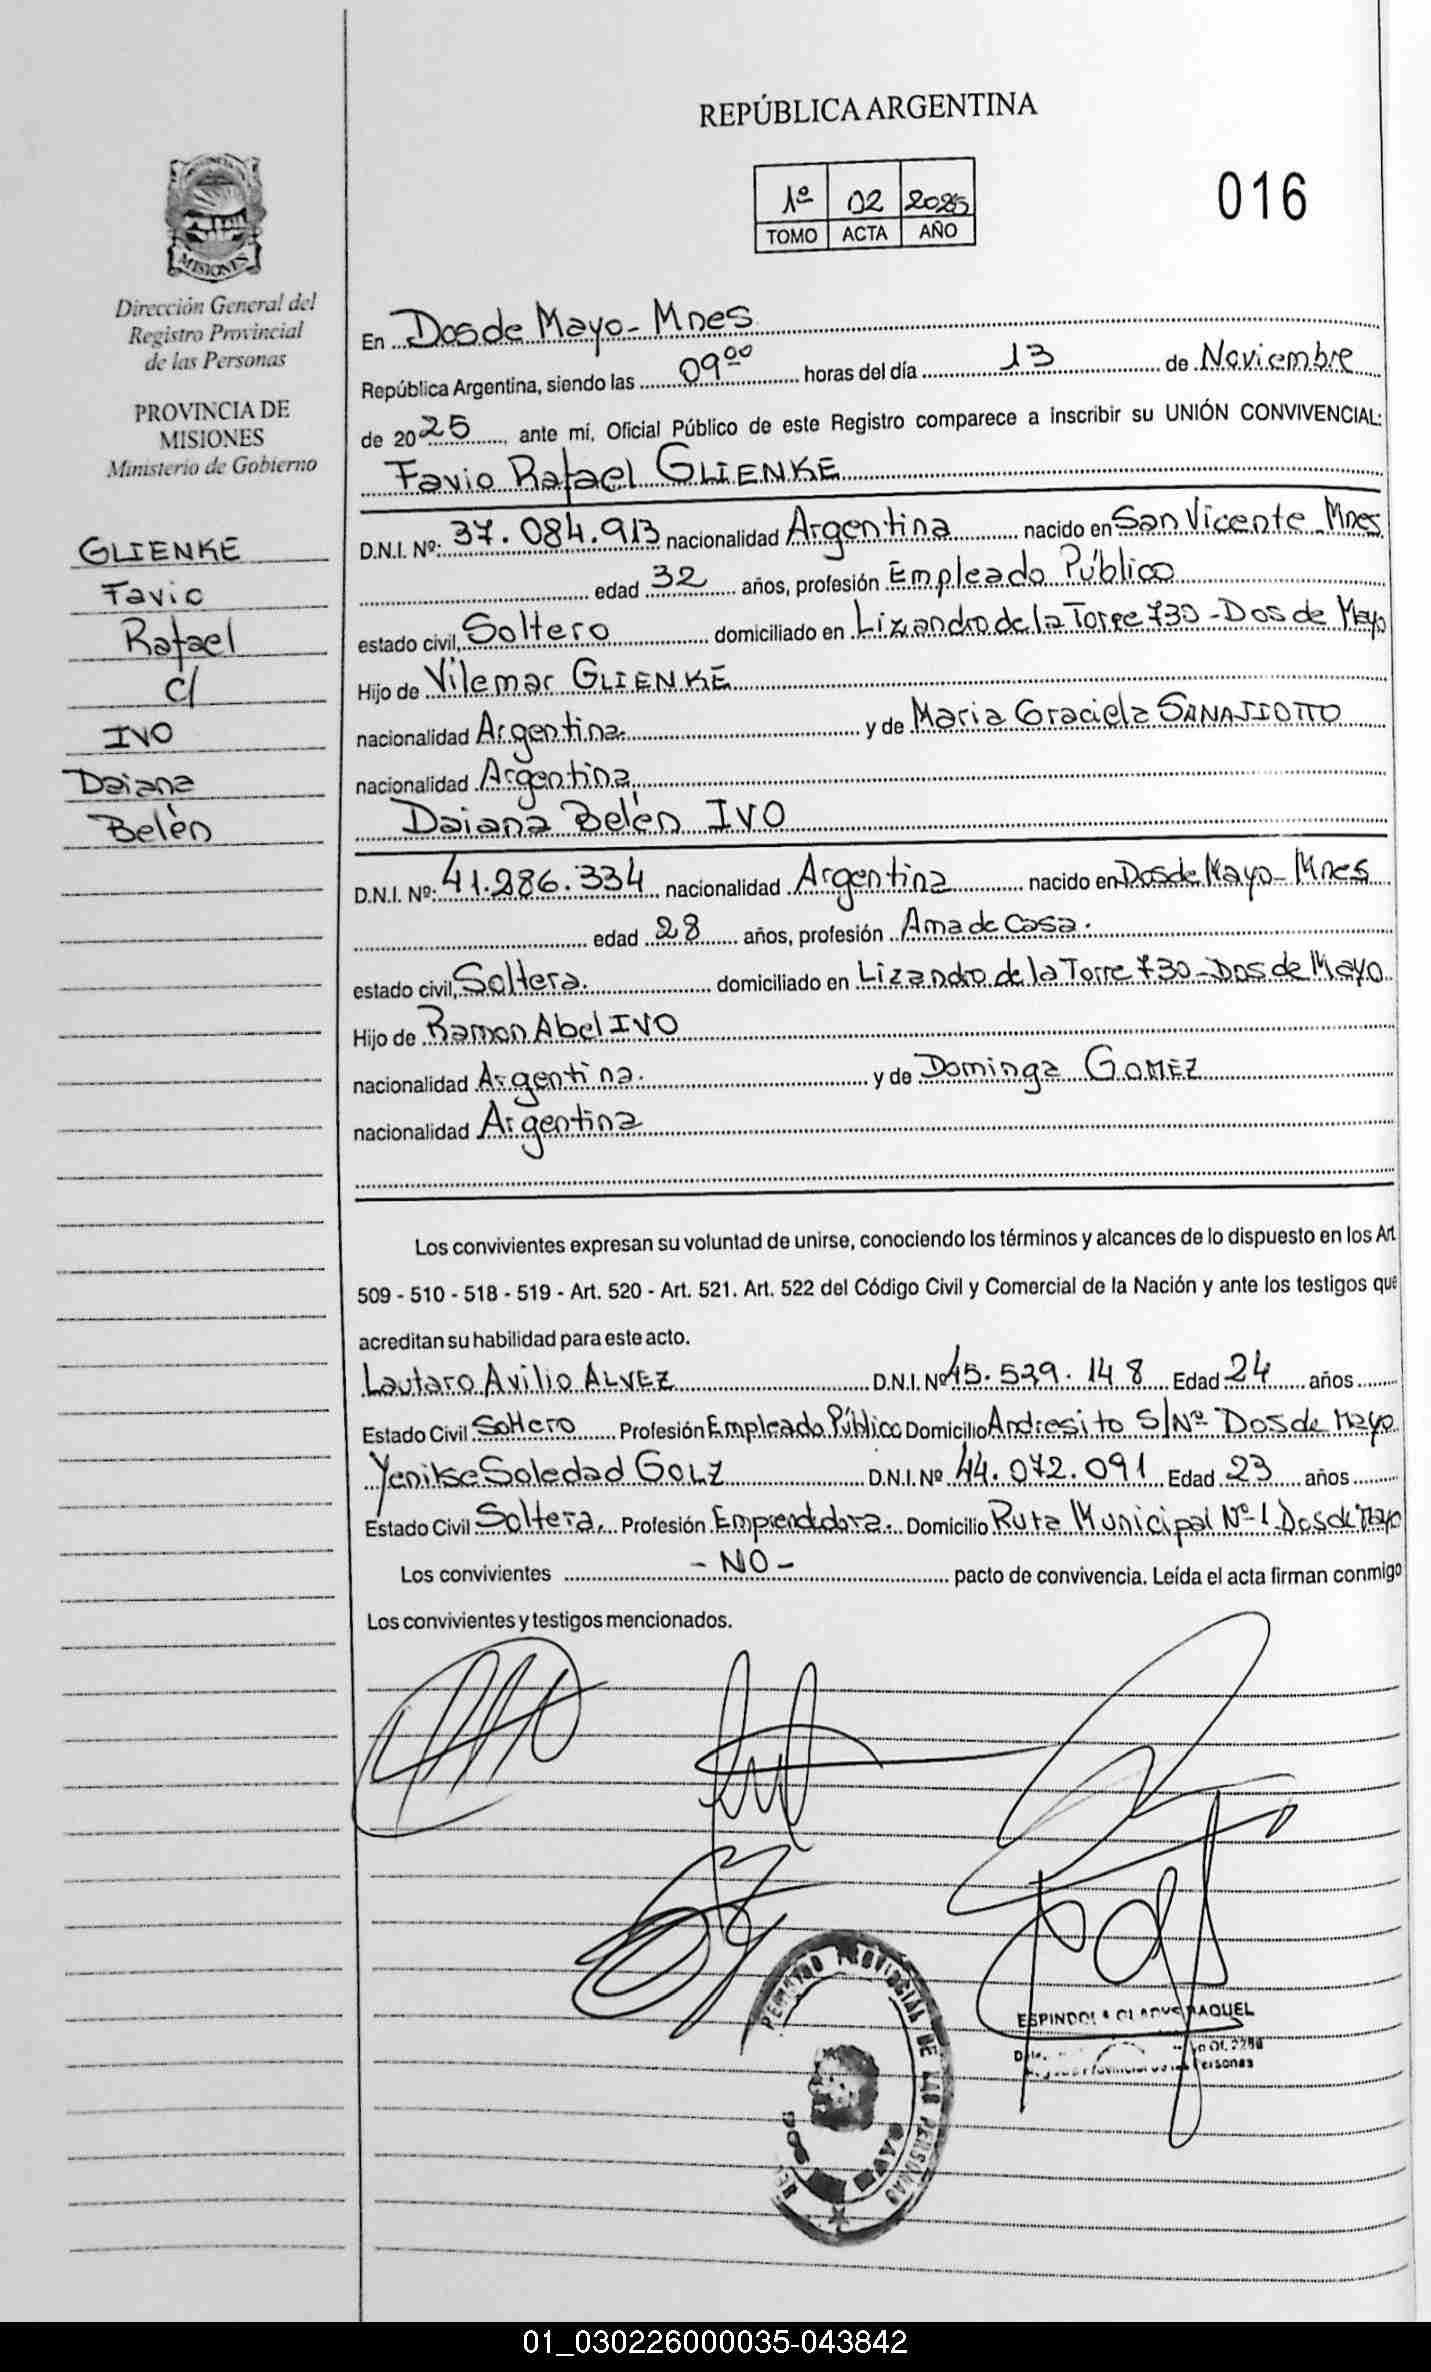 REPÚBLICA ARGENTINA
1º 02 2025
TOMO ACTA AÑO
016
MISIONES
Dirección General del
Registro Provincial
de las Personas
PROVINCIA DE
MISIONES
Ministerio de Gobierno
GLIENKE
Favio
Rafael
c/
IVO
Daiana
Belén
En Dos de Mayo - Mnes
República Argentina, siendo las 09⁰⁰ horas del día 13 de Noviembre
de 2025, ante mí, Oficial Público de este Registro comparece a inscribir su UNIÓN CONVIVENCIAL:
Favio Rafael GLIENKE
D.N.I. Nº: 37.084.913 nacionalidad Argentina nacido en San Vicente Mnes
edad 32 años, profesión Empleado Público
estado civil, Soltero domiciliado en Lizandro de la Torre 730 - Dos de Mayo
Hijo de Vilemar GLIENKE
nacionalidad Argentina y de Maria Graciela SANAJIOTTO
nacionalidad Argentina
Daiana Belén IVO
D.N.I. Nº: 41.286.334 nacionalidad Argentina nacido en Dos de Mayo - Mnes
edad 28 años, profesión Ama de Casa.
estado civil, Soltera. domiciliado en Lizandro de la Torre 730 - Dos de Mayo
Hijo de Ramon Abel IVO
nacionalidad Argentina. y de Dominga GOMEZ
nacionalidad Argentina
Los convivientes expresan su voluntad de unirse, conociendo los términos y alcances de lo dispuesto en los Art.
509 - 510 - 518 - 519 - Art. 520 - Art. 521. Art. 522 del Código Civil y Comercial de la Nación y ante los testigos que
acreditan su habilidad para este acto.
Lautaro Avilio ALVEZ D.N.I. Nº 45.539.148 Edad 24 años
Estado Civil Soltero Profesión Empleado Público Domicilio Andresito S/Nº Dos de Mayo
Yenilse Soledad GOLZ D.N.I. Nº 44.072.091 Edad 23 años
Estado Civil Soltera. Profesión Emprendedora. Domicilio Ruta Municipal Nº 1 Dos de Mayo
Los convivientes - NO - pacto de convivencia. Leída el acta firman conmigo
Los convivientes y testigos mencionados.
REGISTRO PROVINCIAL DE LAS PERSONAS
DOS DE MAYO
ESPINDOLA GLADYS RAQUEL
Registro Provincial de las Personas
01_030226000035-043842